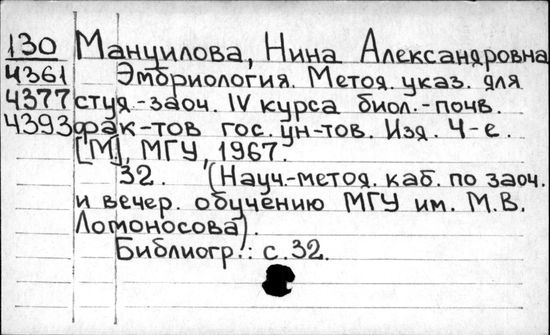 130 Мануилова, Нина Александровна
4361 Эмбриология. Метод. указ. для
4377 студ.-заоч. IV курса биол.-почв.
4393 фак-тов гос. ун-тов. Изд. 4-е.
[М.], МГУ, 1967.
32. (Науч.-метод. каб. по заоч.
и вечер. обучению МГУ им. М.В.
Ломоносова).
Библиогр.: с. 32.